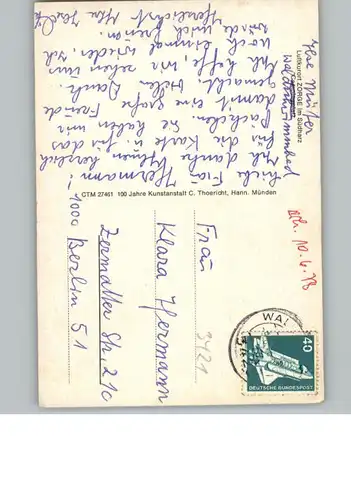 Liebe Frau Hermann!
Ich danke Ihnen herzlich
für die Karte u. für das
Päckchen. Sie haben mir
damit eine große Freude
gemacht. Vielen Dank.
Ich hoffe wir sehen uns
noch einmal wieder, ich
würde mich freuen.
Herzlichst Ihre
Ihre Mutter
Luftkurort ZORGE im Südharz
CTM 27461 100 Jahre Kunstanstalt C. Thoericht, Hann. Münden
Ach. 10.4.78
WAL
40
DEUTSCHE BUNDESPOST
Frau
Klara Hermann
3421
Zermatter Str. 21c
1000 Berlin 51